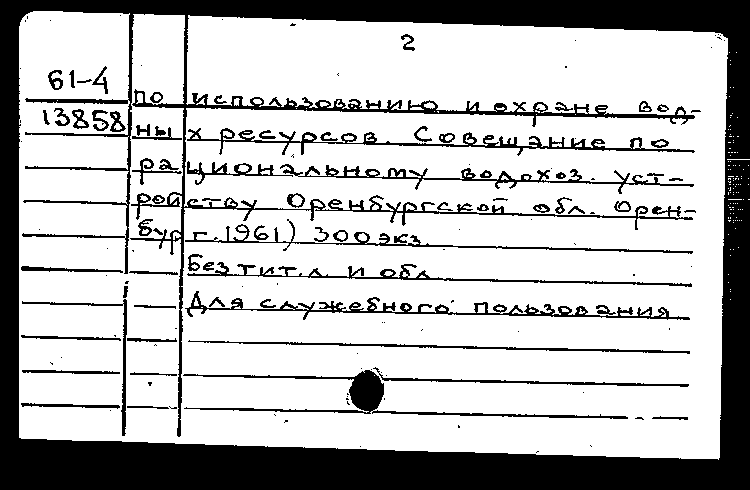 2
61-4
13858
по использованию и охране вод-
ных ресурсов. Совещание по
рациональному водохоз. уст-
ройству Оренбургской обл. Орен-
бург. 1961) 300 экз.
Без тит. л. и обл
Для служебного пользования